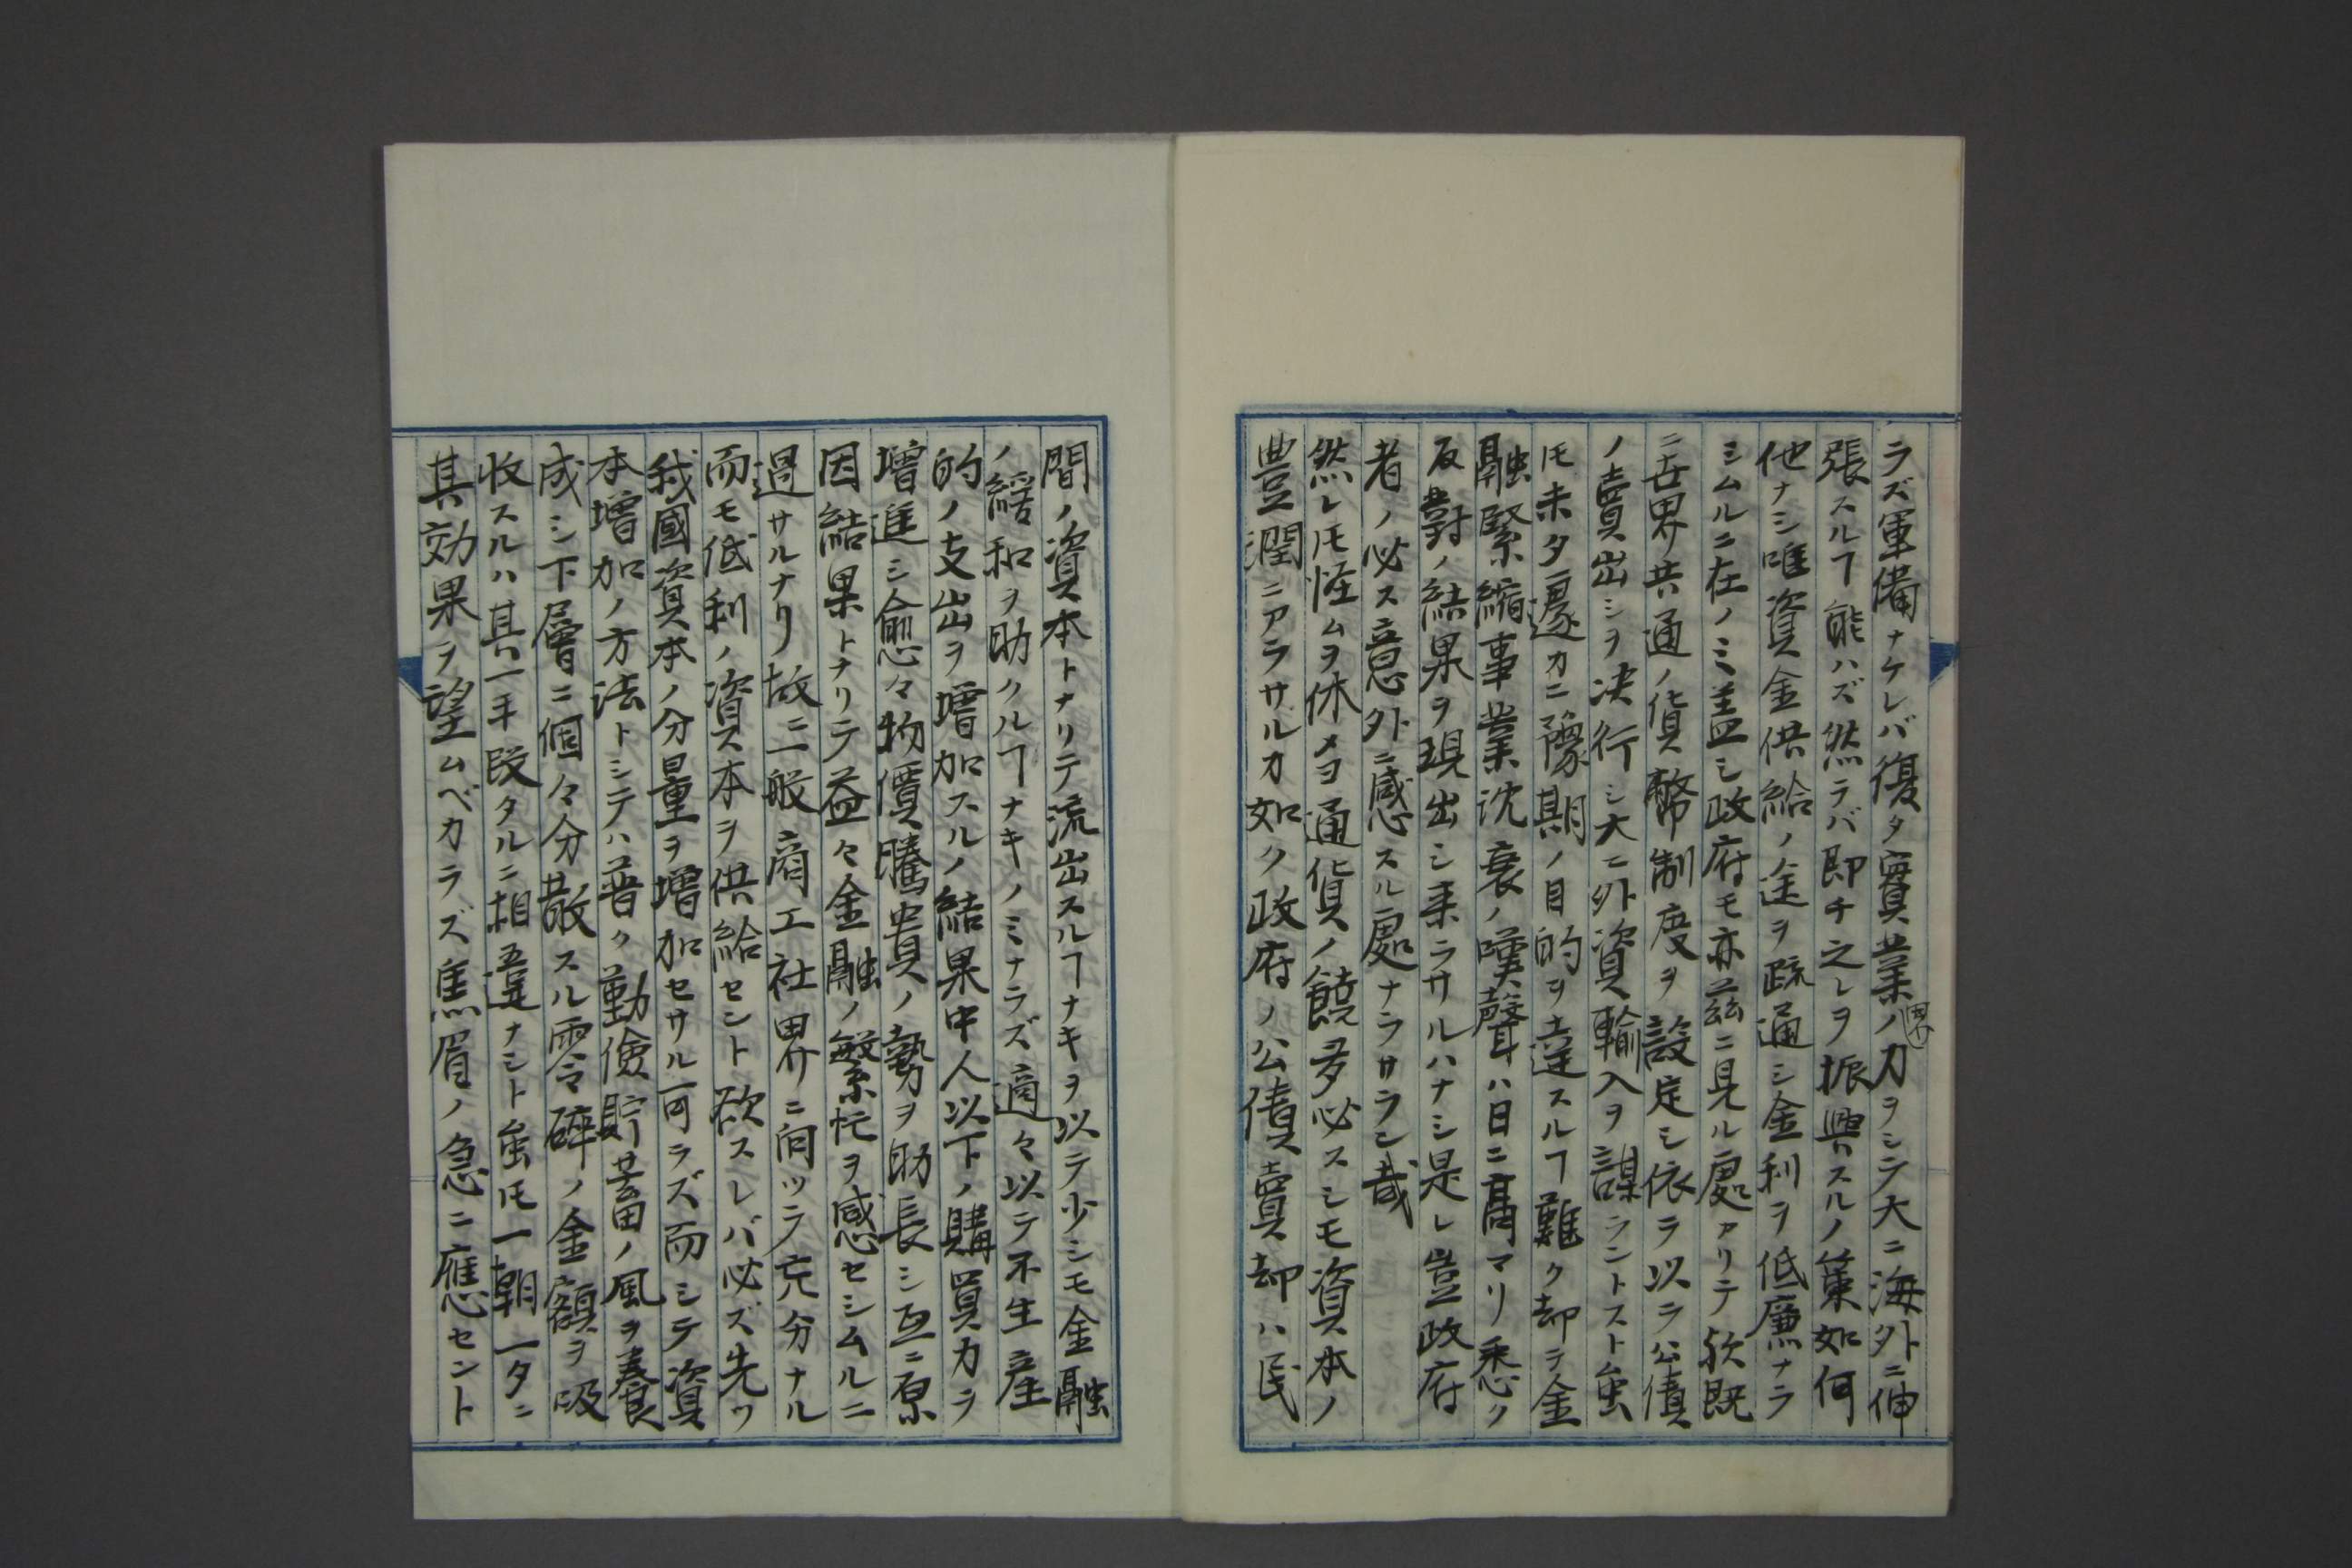 ラズ軍備ナケレバ復タ實業界ノ力ヲシテ大ニ海外ニ伸
張スルヿ能ハズ然ラバ即チ之レヲ振興スルノ策如何
他ナシ唯資金供給ノ途ヲ疏通シ金利ヲ低廉ナラ
シムルニ在ノミ蓋シ政府モ亦茲ニ見ル處アリテ歟既
ニ世界共通ノ貨幣制度ヲ設定シ依テ以テ公債
ノ賣出シヲ决行シ大ニ外資輸入ヲ謀ラントスト虽
𪜈未タ遽カニ豫期ノ目的ヲ達スルヿ難ク却テ金
融緊縮事業沈衰ノ嘆聲ハ日ニ髙マリ悉ク
反對ノ結果ヲ現出シ来ラサルハナシ是レ豈政府
者ノ必ス意外ニ感スル處ナラサラン哉
然レ𪜈怪ムヲ休メヨ通貨ノ饒多必スシモ資本ノ
豊潤ニアラサルカ如ク政府ノ公債賣却ハ民
間ノ資本トナリテ流出スルヿナキヲ以テ少シモ金融
ノ緩和ヲ助クルヿナキノミナラズ適々以テ不生産
的ノ支出ヲ増加スルノ結果中人以下ノ購買力ヲ
増進シ愈々物價騰貴ノ勢ヲ助長シ互ニ原
因結果トナリテ益々金融ノ繁忙ヲ感セシムルニ
過サルナリ故ニ一般商工社界ニ向ツテ充分ナル
而モ低利ノ資本ヲ供給セント欲スレバ必ズ先ツ
我國資本ノ分量ヲ増加セサル可ラズ而シテ資
本増加ノ方法トシテハ普ク勤儉貯蓄ノ風ヲ養
成シ下層ニ個々分散スル零碎ノ金額ヲ吸
收スルハ其一手段タルニ相違ナシト虽𪜈一朝一夕ニ
其効果ヲ望ムベカラズ焦眉ノ急ニ應セント